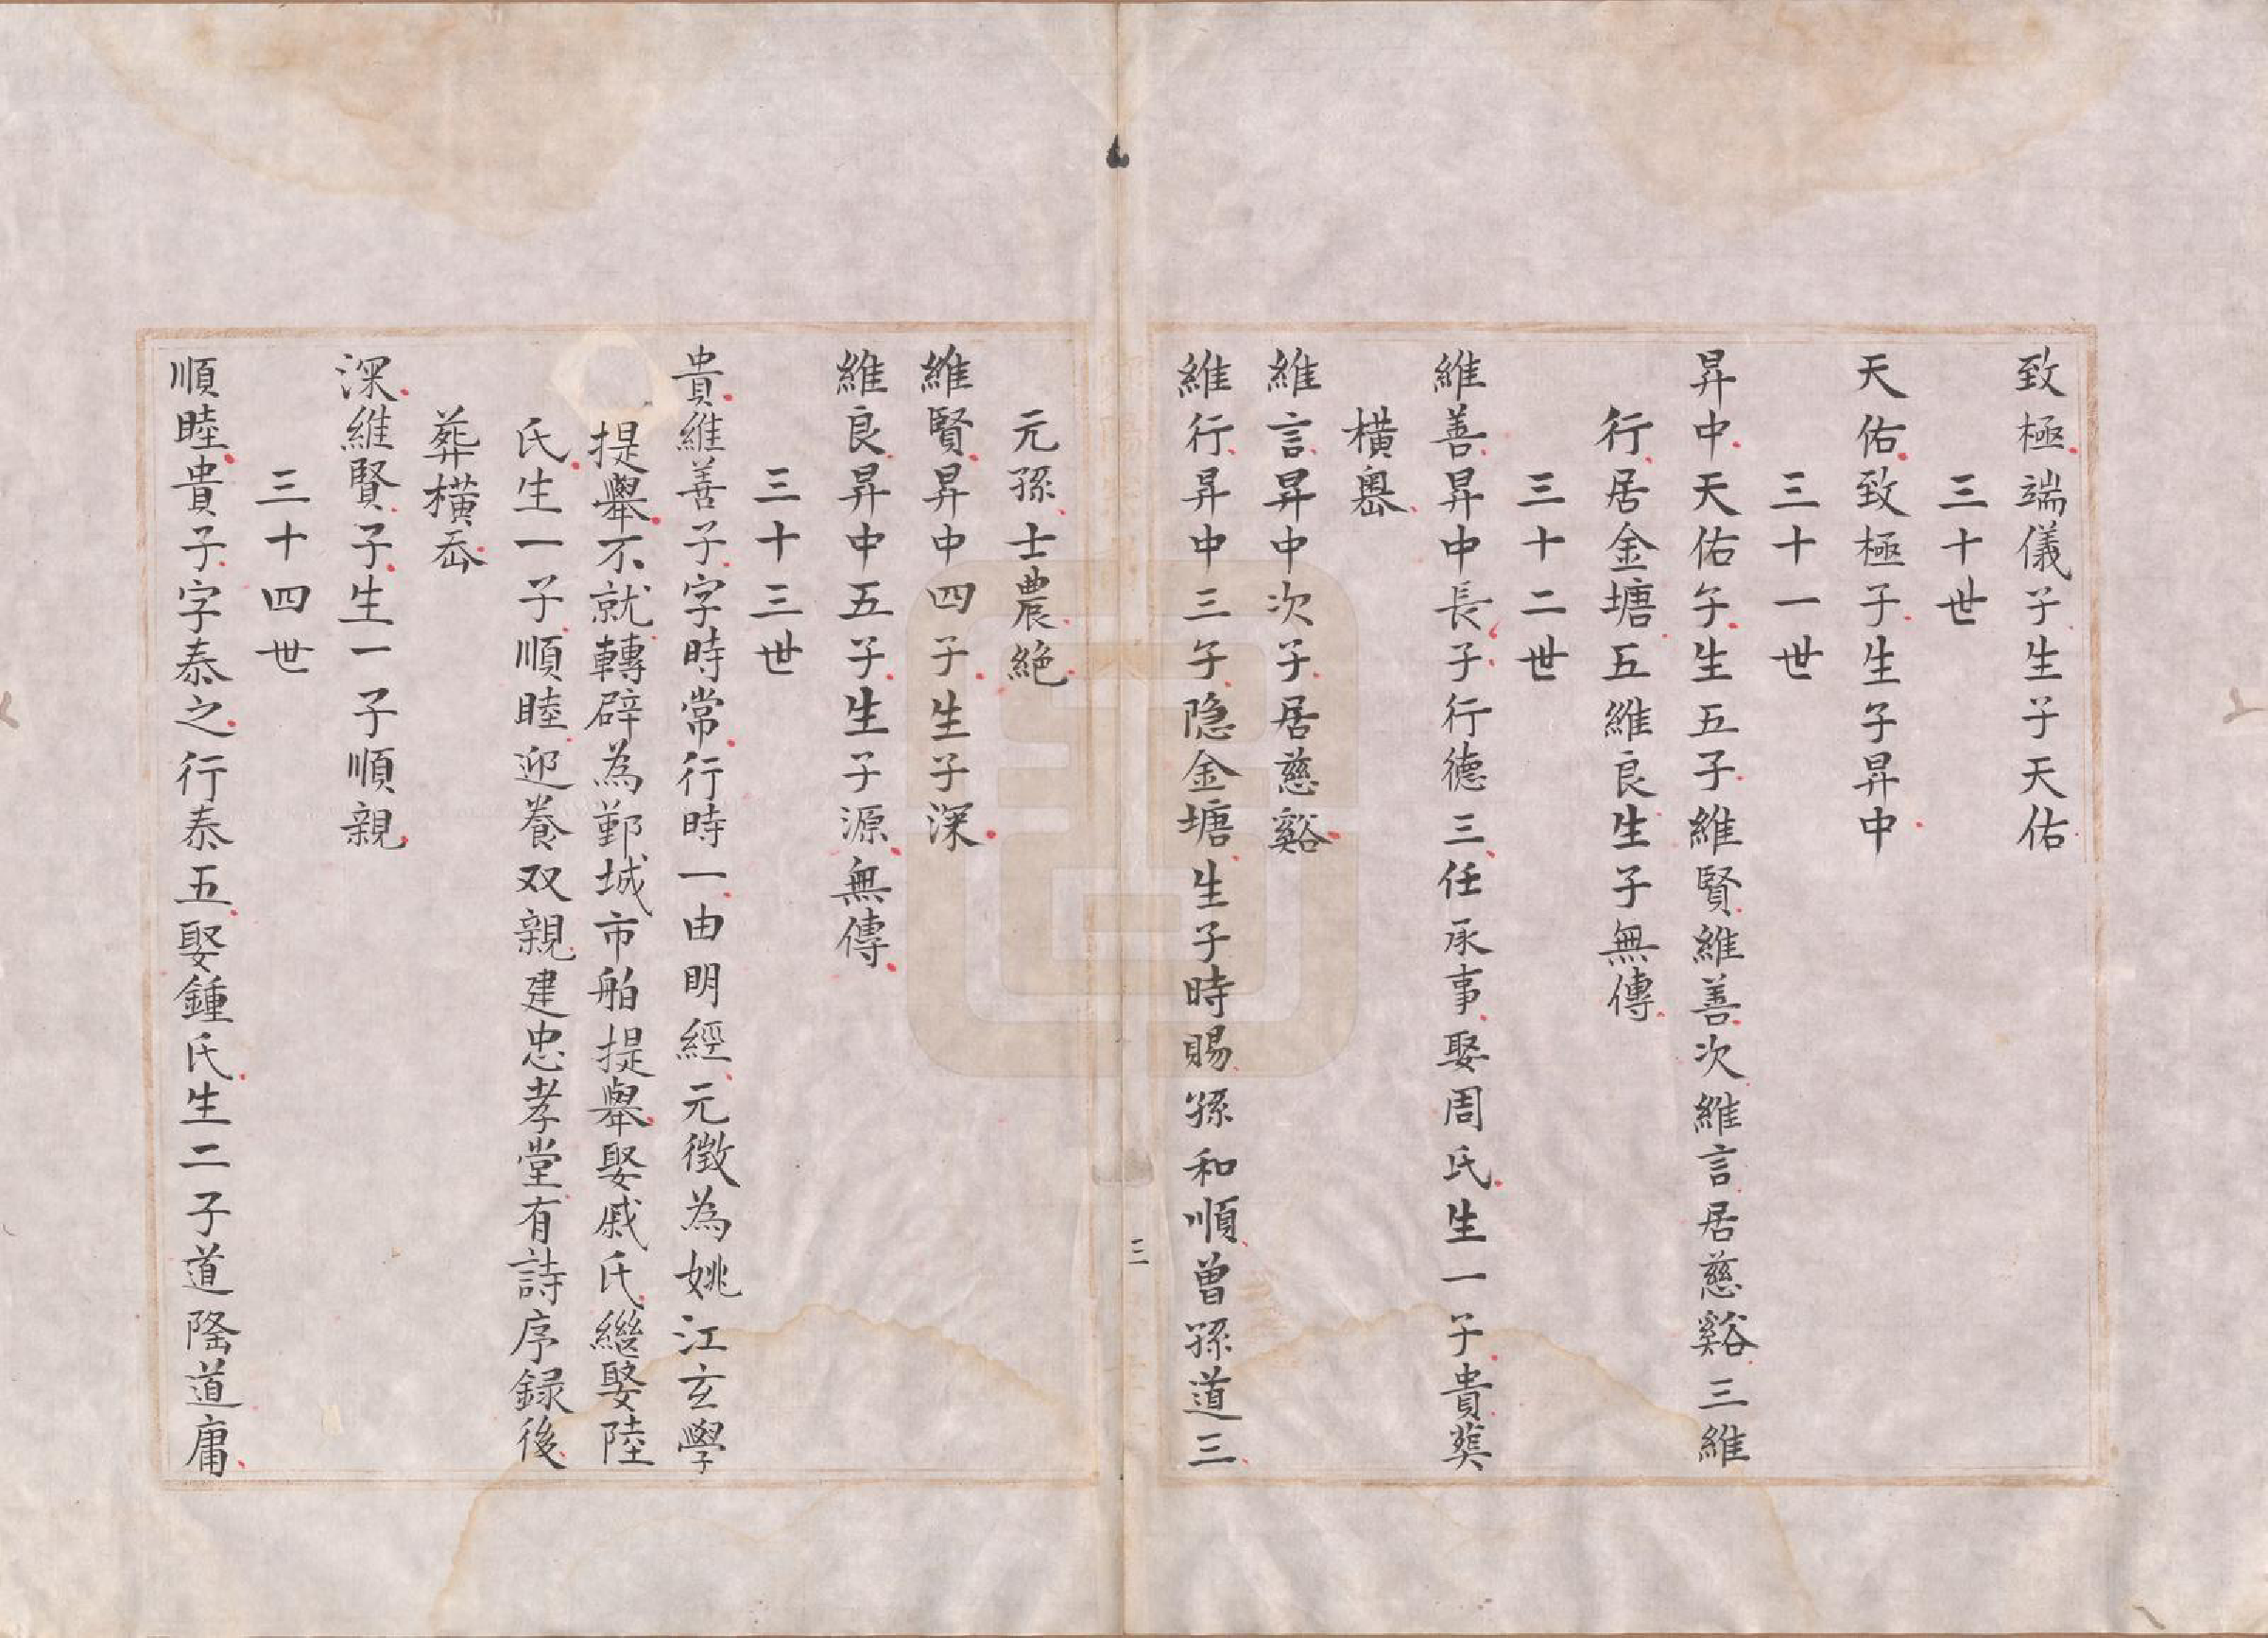 致極端儀子生子天佑
三十世
天佑致極子生子昇中
三十一世
昇中天佑子生五子維賢維善次維言居慈谿三維
行居金塘五維良生子無傳
三十二世
維善昇中長子行德三任承事娶周氏生一子貴葬
橫嶴
維言昇中次子居慈谿
維行昇中三子隐金塘生子時賜孫和順曾孫道三
三
元孫士農絶
維賢昇中四子生子深
維良昇中五子生子源無傳
三十三世
貴維善子字時常行時一由明經元徵為姚江玄學
提舉不就轉辟為鄞城市舶提舉娶戚氏繼娶陸
氏生一子順睦迎養双親建忠孝堂有詩序録後
葬橫岙
深維賢子生一子順親
三十四世
順睦貴子字泰之行泰五娶鍾氏生二子道隆道庸